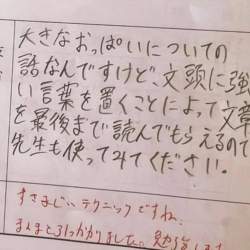 大きなおっぱいについての
話なんですけど、文頭に強
い言葉を置くことによって文章
を最後まで読んでもらえるので
先生も使ってみてください。
すさまじいテクニックですね。
まんまと引っかかりました。勉強